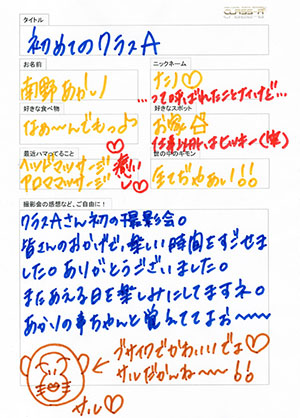 CLASS-A
タイトル
初めてのクラスA
お名前
ニックネーム
南野あかり
たり♡
...って呼ばれたことナイけど...
好きな食べ物
好きなスポット
なぁ〜んでもっょ
お家
仕事以外はヒッキー(笑)
最近ハマってること
世の中のキモン
ヘッドマッサージ
アロママッサージ
癒しぃ♡
全てぢゃぁぃ!oo
撮影会の感想など、ご自由に!
クラスAさん初の撮影会。
皆さんのおかげで、楽しい時間をすごせま
した。ありがとうございました。
またあえる日を楽しみにしてますネ。
あかりの事ちゃんと覚えててよぉ〜〜〜
ブサイクでかわいいでょ♡
サルだかんね〜!oo
サル♡